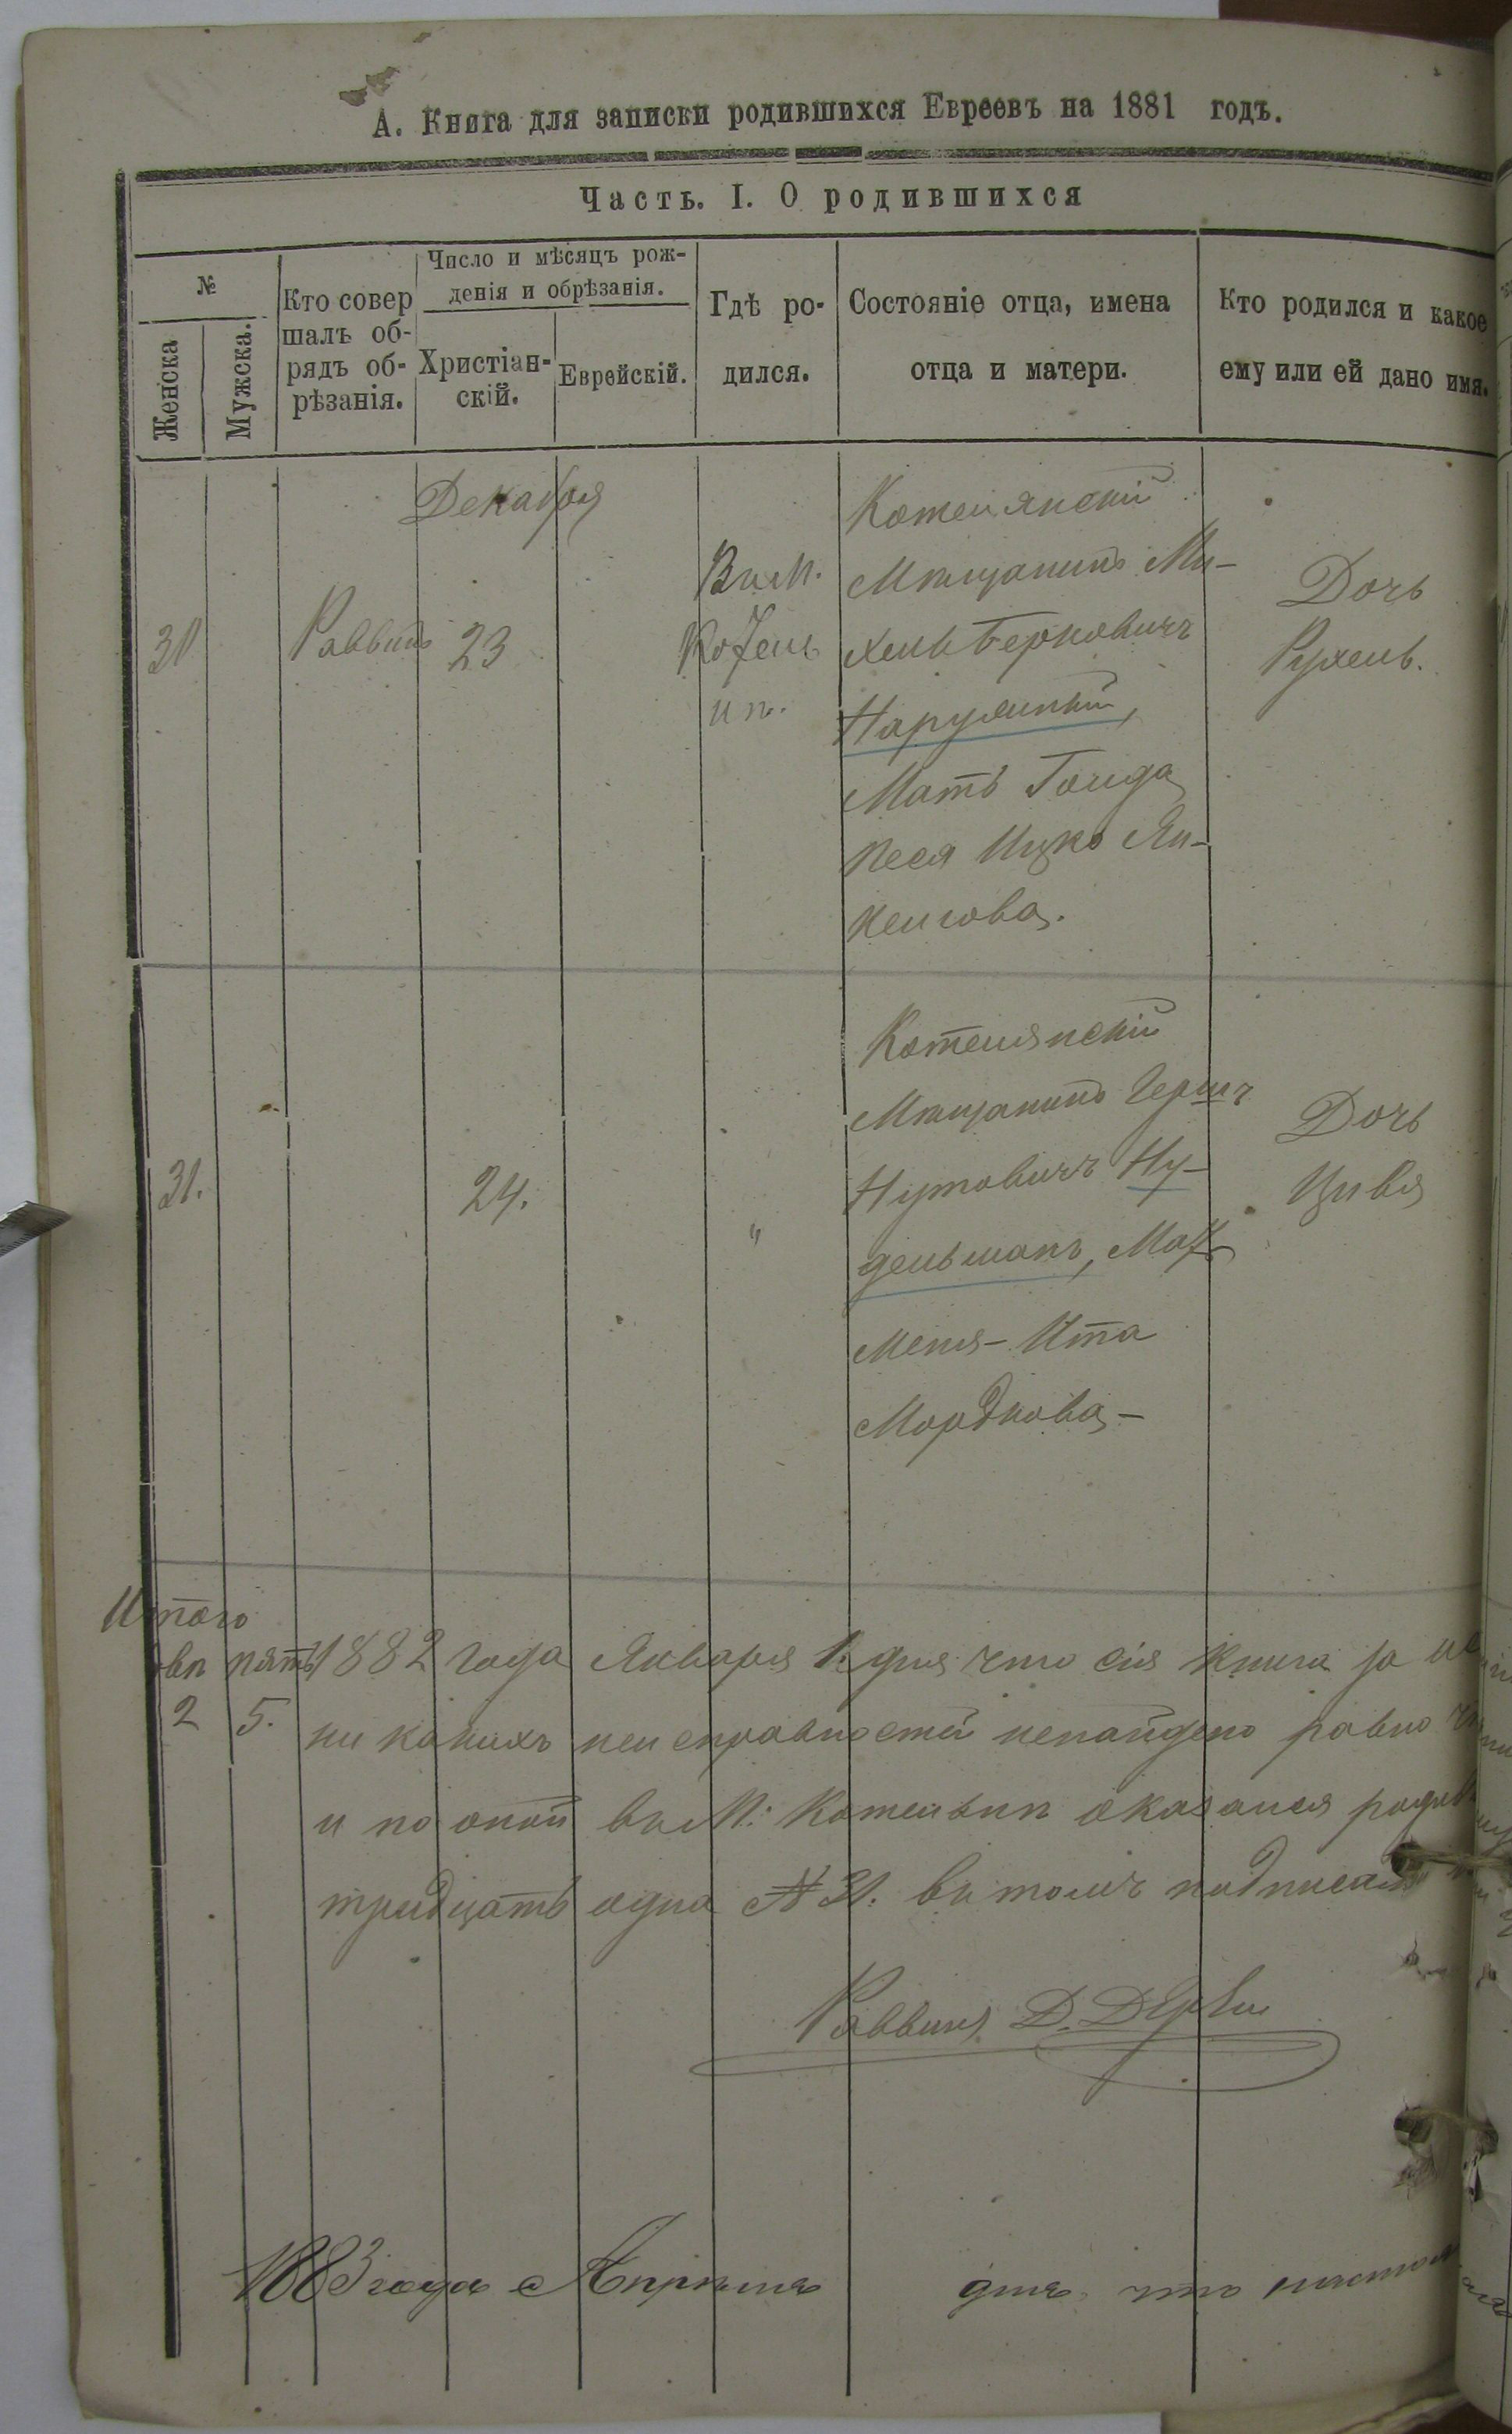 А. Книга для записки родившихся Евреевъ на 1881 годъ.
Часть. I. О родившихся
№
Женска
Мужска.
Кто совер
шалъ об-
рядъ об-
рѣзанія.
Число и мѣсяцъ рож-
денія и обрѣзанія.
Христіан-
скій.
Еврейскій.
Гдѣ ро-
дился.
Состояніе отца, имена
отца и матери.
Кто родился и какое
ему или ей дано имя.
Декабря
30
Раввинъ
23
Въ М.
Котель
нѣ.
Котелянскій
Мѣщанинъ Ми-
хель Берковичъ
Мать Гольда
Песя Ицко Ян-
келиова.
Дочь
Рухель.
31.
24.
"
Котелянскій
Мѣщанинъ Гершъ
Нутовичъ Ну-
дельманъ, Мать
Меня-Ита
Мордкова-
Дочь
Цивя
Итого
пять
2 5.
1882 года Января 1 дня что сія книга за
ни какихъ неисправностей ненайдено равно
и по оной въ М: Котельнѣ оказался
тридцать одна № 31. въ томъ подписалъ
Раввинъ Д.
1883 года Апрѣля дня что